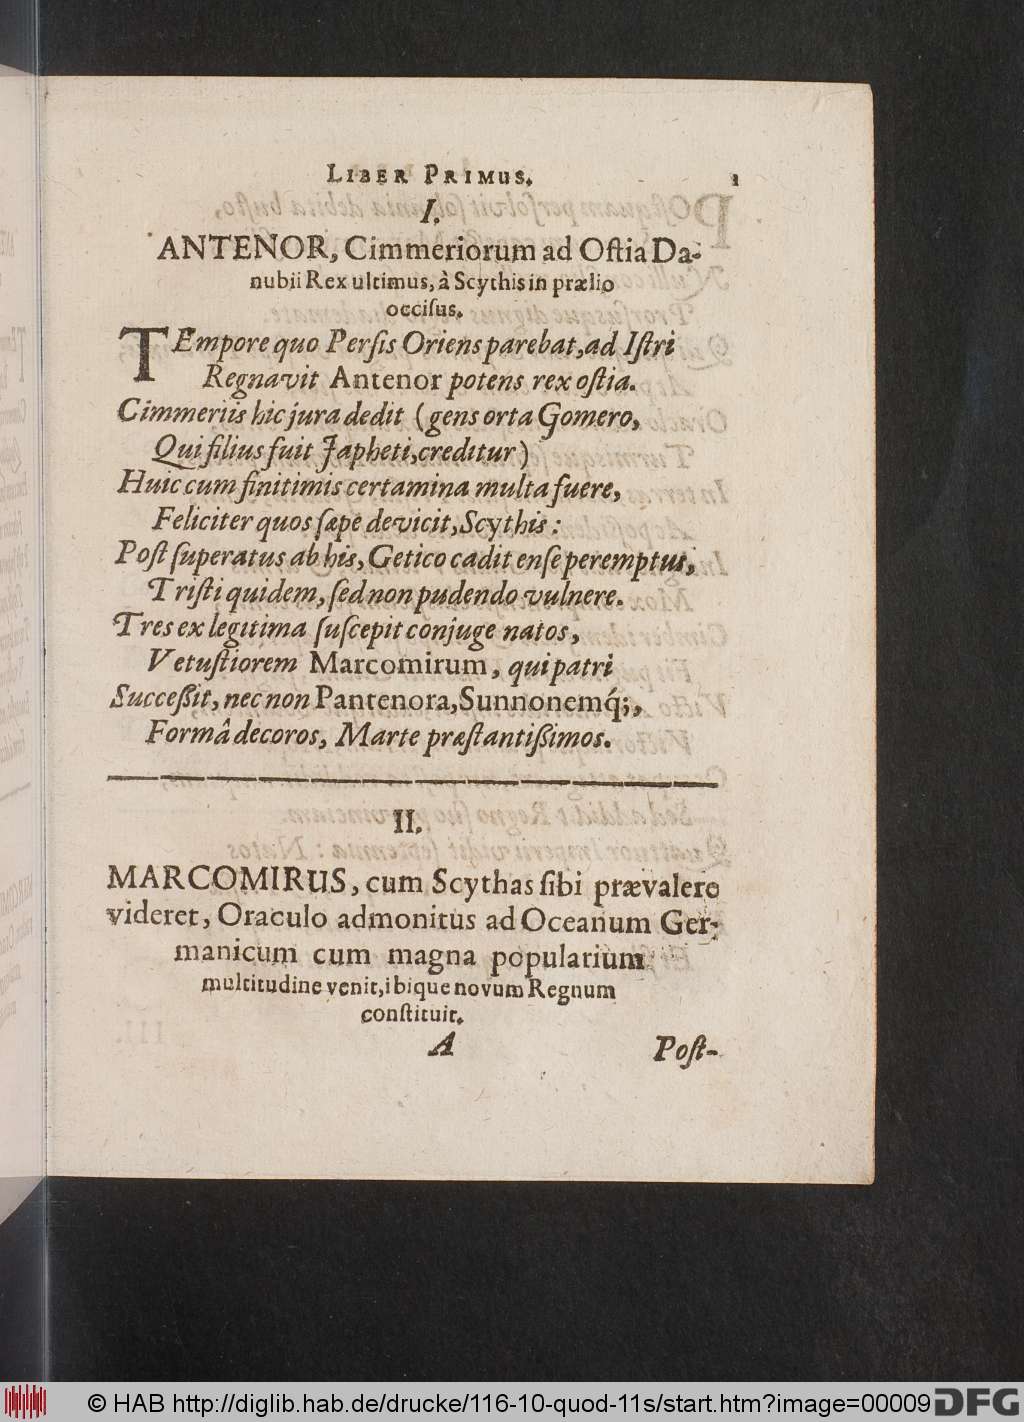 LIBER PRIMUS. 1
I.
ANTENOR, Cimmeriorum ad Oſtia Da-
nubii Rex ultimus, à Scythis in prælio
occiſus.
TEmpore quo Perſis Oriens parebat, ad Iſtri
Regnavit Antenor potens rex oſtia.
Cimmeriis hic jura dedit (gens orta Gomero,
Qui filius fuit Japheti, creditur)
Huic cum finitimis certamina multa fuere,
Feliciter quos ſæpe devicit, Scythis:
Poſt ſuperatus ab his, Getico cadit enſe peremptus,
Triſti quidem, ſed non pudendo vulnere.
Tres ex legitima ſuſcepit conjuge natos,
Vetuſtiorem Marcomirum, qui patri
Succeßit, nec non Pantenora, Sunnonemq́;,
Formâ decoros, Marte præſtantißimos.
II.
MARCOMIRUS, cum Scythas ſibi prævalere
videret, Oraculo admonitus ad Oceanum Ger-
manicum cum magna popularium
multitudine venit, ibique novum Regnum
conſtituit.
A Poſt-
© HAB http://diglib.hab.de/drucke/116-10-quod-11s/start.htm?image=00009 DFG